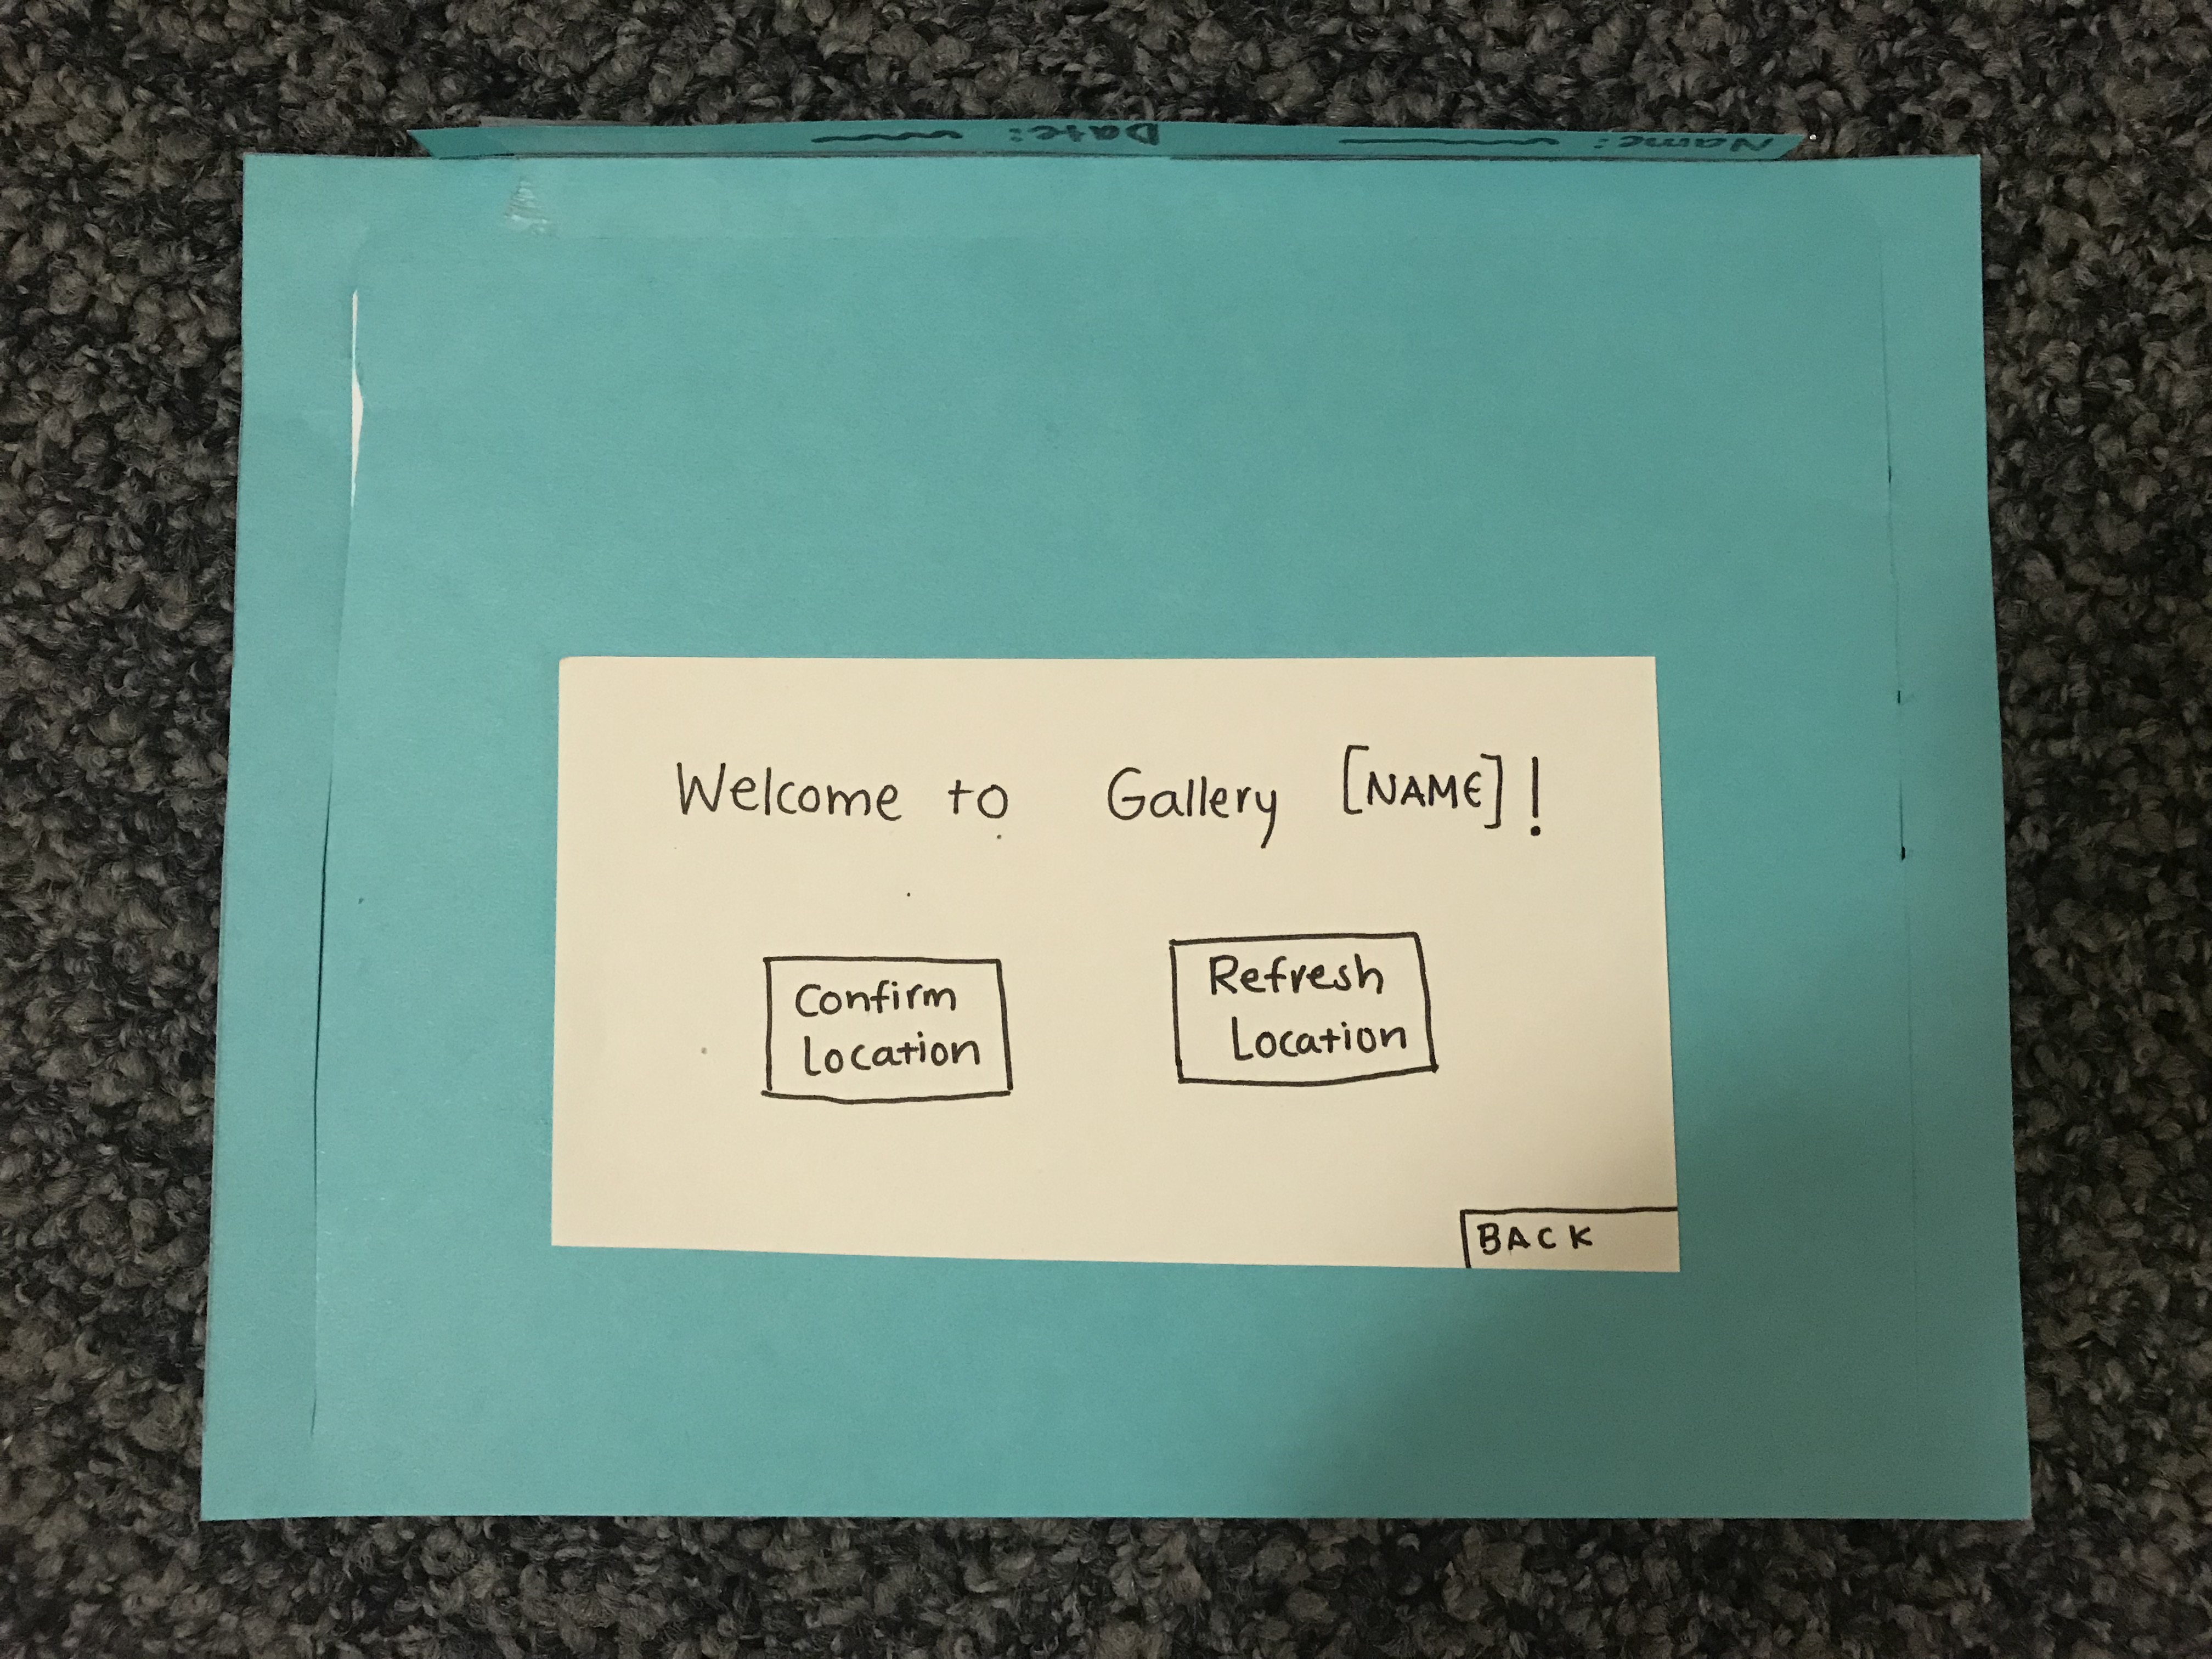 Name: Date:
Welcome to Gallery [NAME]!
Confirm
Location
Refresh
Location
BACK